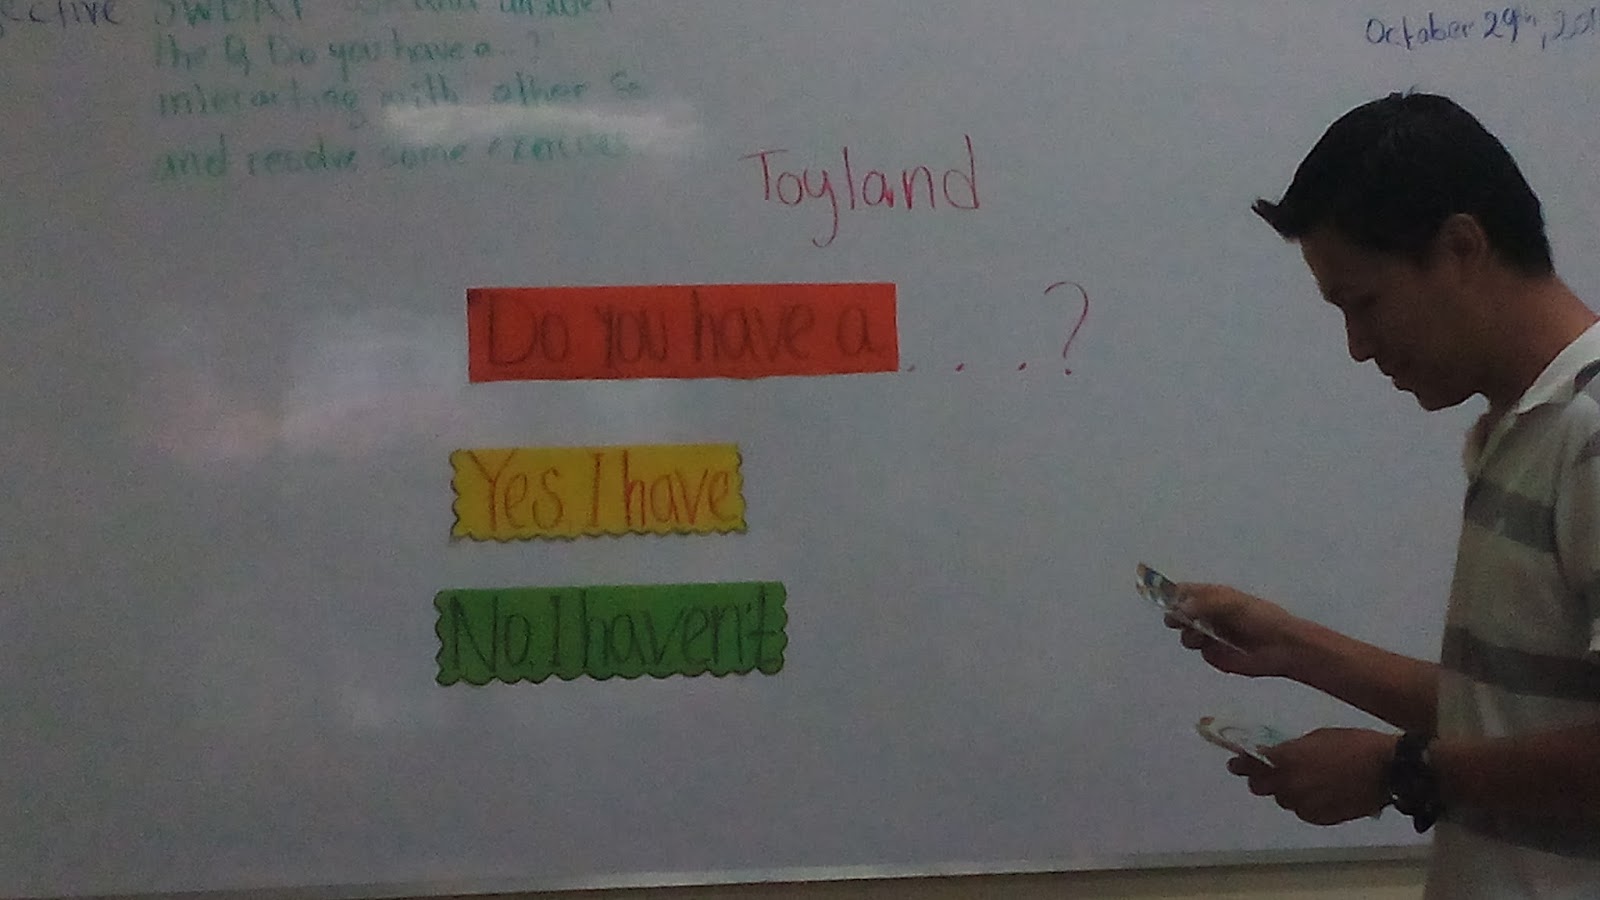 SWBAT ask and answer
the Q Do you have a..?
interacting with other Ss
and resolve some exercises
October 29th,
Toyland
Do you have a ....?
Yes, I have
No, I haven't